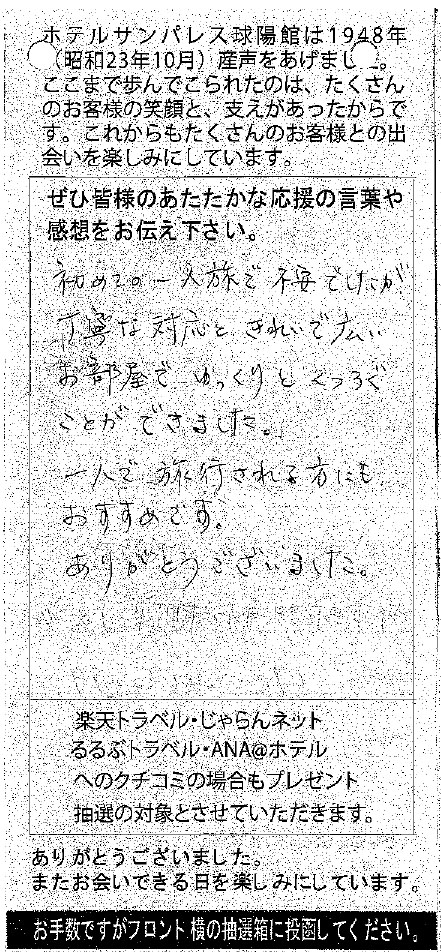 ホテルサンパレス球陽館は1948年
（昭和23年10月）産声をあげました。
ここまで歩んでこられたのは、たくさん
のお客様の笑顔と、支えがあったからで
す。これからもたくさんのお客様との出
会いを楽しみにしています。
ぜひ皆様のあたたかな応援の言葉や
感想をお伝え下さい。
初めての一人旅で不安でしたが
丁寧な対応ときれいで広い
お部屋でゆっくりとくつろぐ
ことができました。
一人で旅行される方にも
おすすめです。
ありがとうございました。
楽天トラベル・じゃらんネット
るるぶトラベル・ANA@ホテル
へのクチコミの場合もプレゼント
抽選の対象とさせていただきます。
ありがとうございました。
またお会いできる日を楽しみにしています。
お手数ですがフロント横の抽選箱に投函してください。